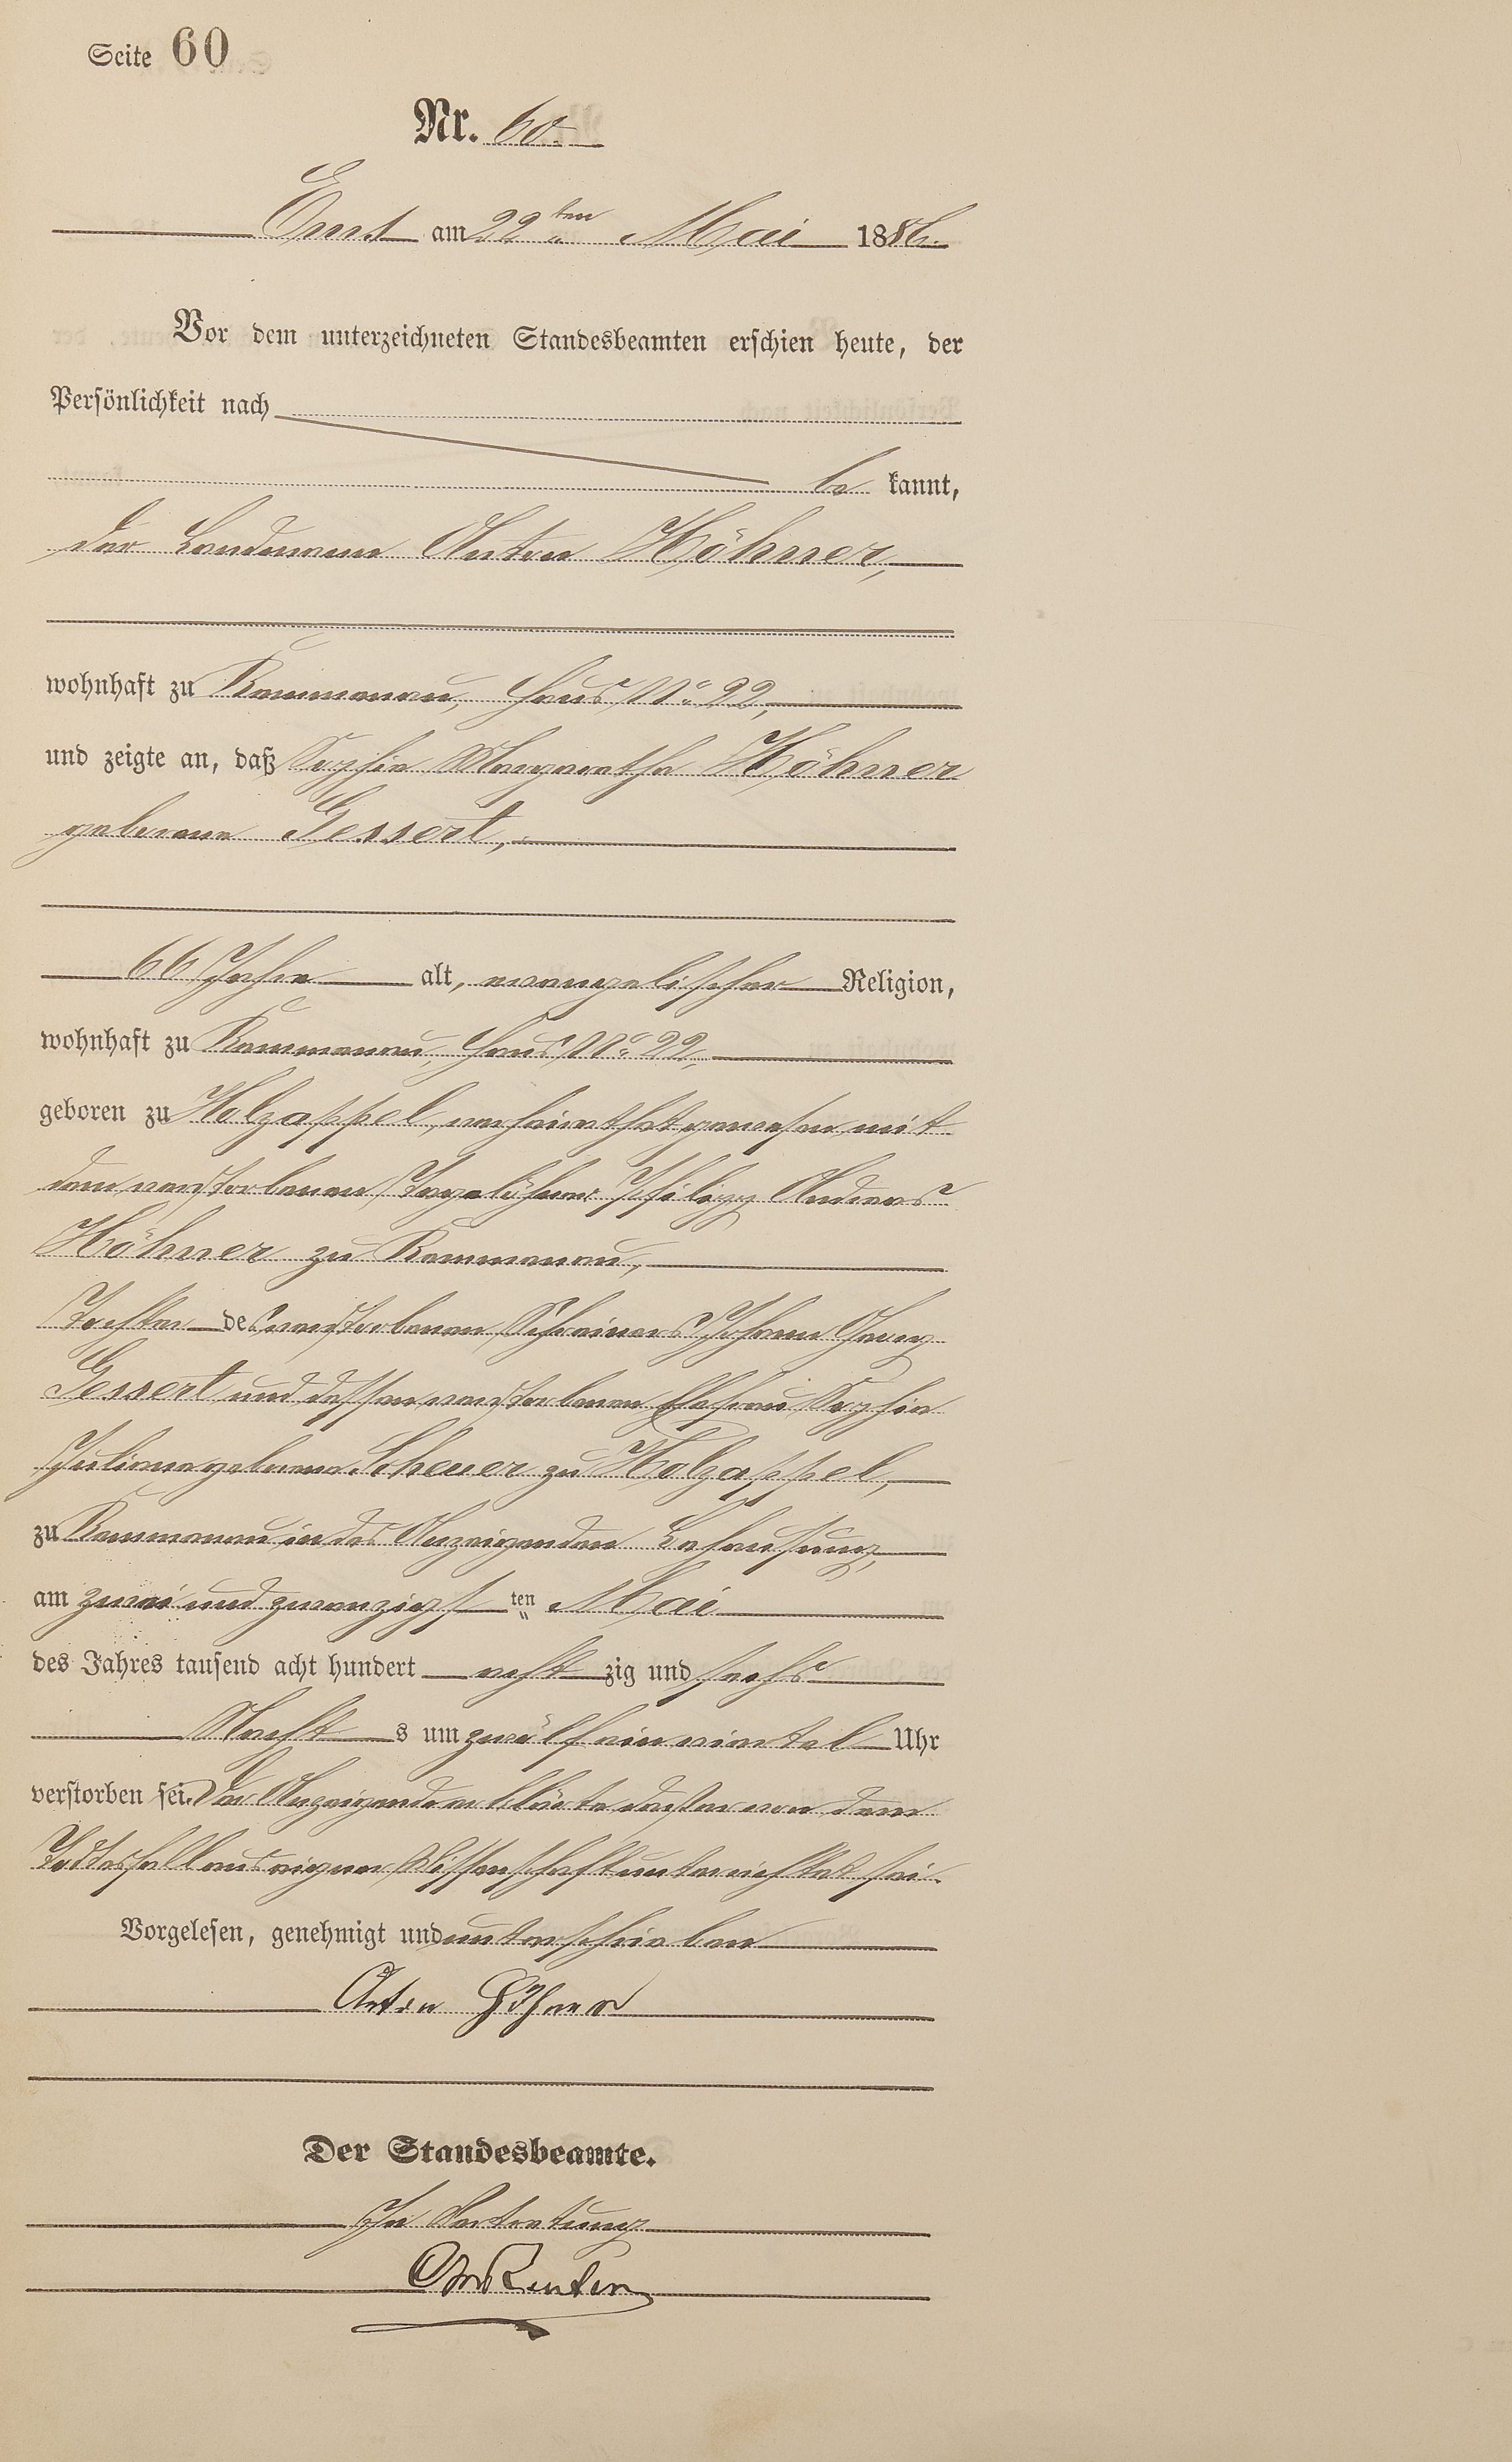 Seite 60
Nr. 60.
Ems am 22ten Mai 1886.
Vor dem unterzeichneten Standesbeamten erschien heute, der
Persönlichkeit nach
be kannt,
der Landmann Anton Höhner,
wohnhaft zu Kemmenau, Haus No 22,
und zeigte an, daß Sophie Margaretha Höhner
geborene Gessert,
66 Jahre alt, evangelischer Religion,
wohnhaft zu Kemmenau, Haus No 22,
geboren zu Holzappel, verheirathet gewesen mit
dem verstorbenen Tagelöhner Philipp Andreas
Höhner zu Kemmenau,
Tochter des verstorbenen Schreiners Johann Georg
Gessert und dessen verstorbenen Ehefrau Sophie
Juliane geborene Scheuer zu Holzappel,
zu Kemmenau in des Anzeigenden Behausung,
am zwei und zwanzigsten Mai
des Jahres tausend acht hundert acht zig und sechs
Nacht s um zwölf ein viertel Uhr
verstorben sei. Der Anzeigende erklärte daß er von dem
Todesfall aus eigener Wissenschaft unterrichtet sei.
Vorgelesen, genehmigt und unterschrieben
Anton Höhner
Der Standesbeamte.
In Vertretung